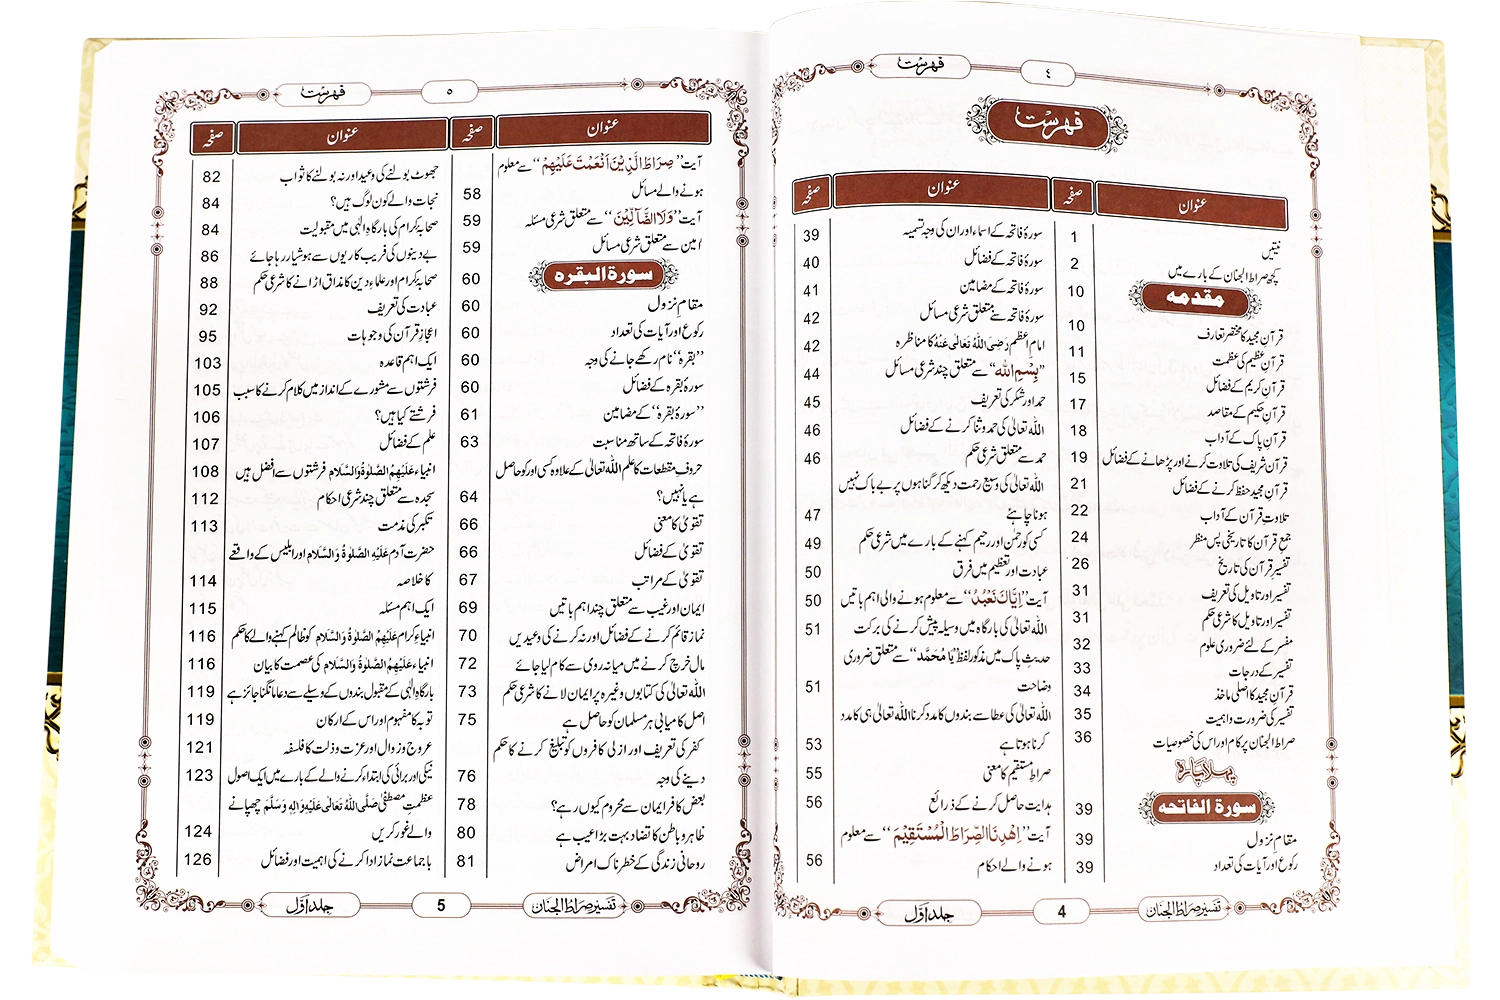 فہرست
٤
فہرست
عنوان
صفحہ
عنوان
صفحہ
نیتیں 1
کچھ صراط الجنان کے بارے میں 2
مقدمہ 10
قرآن مجید کا مختصر تعارف 10
قرآن عظیم کی عظمت 11
قرآن کریم کے فضائل 15
قرآن حکیم کے مقاصد 17
قرآن پاک کے آداب 18
قرآن شریف کی تلاوت کرنے اور پڑھانے کے فضائل 19
قرآن مجید حفظ کرنے کے فضائل 21
تلاوتِ قرآن کے آداب 22
جمع قرآن کا تاریخی پس منظر 24
تفسیر قرآن کی تاریخ 26
تفسیر اور تاویل کی تعریف 31
تفسیر اور تاویل کا شرعی حکم 31
مفسر کے لئے ضروری علوم 32
تفسیر کے درجات 33
قرآن مجید کا اصلی ماخذ 34
تفسیر کی ضرورت و اہمیت 35
صراط الجنان پر کام اور اس کی خصوصیات 36
پہلا پارہ
سورۃ الفاتحہ 39
مقام نزول 39
رکوع اور آیات کی تعداد 39
سورۂ فاتحہ کے اسماء اور ان کی وجہ تسمیہ 39
سورۂ فاتحہ کے فضائل 40
سورۂ فاتحہ کے مضامین 41
سورۂ فاتحہ سے متعلق شرعی مسائل 42
امام اعظم رَضِیَ اللہُ تَعَالٰی عَنْہُ کا مناظرہ 42
”بِسْمِ اللہ“ سے متعلق چند شرعی مسائل 44
حمد اور شکر کی تعریف 45
اللہ تعالیٰ کی حمد و ثنا کرنے کے فضائل 46
حمد سے متعلق شرعی حکم 46
اللہ تعالیٰ کی وسیع رحمت دیکھ کر گناہوں پر بے باک نہیں
ہونا چاہئے 47
کسی کو رحمٰن اور رحیم کہنے کے بارے میں شرعی حکم 49
عبادت اور تعظیم میں فرق 50
آیت ”اِیَّاکَ نَعْبُدُ“ سے معلوم ہونے والی اہم باتیں 50
اللہ تعالیٰ کی بارگاہ میں وسیلہ پیش کرنے کی برکت 51
حدیث پاک میں مذکور لفظ ”یَا مُحَمَّد“ سے متعلق ضروری
وضاحت 51
اللہ تعالیٰ کی عطا سے بندوں کا مدد کرنا اللہ تعالیٰ ہی کا مدد
کرنا ہوتا ہے 53
صراط مستقیم کا معنی 55
ہدایت حاصل کرنے کے ذرائع 56
آیت ”اِهْدِنَا الصِّرَاطَ الْمُسْتَقِیْمَ“ سے معلوم
ہونے والے احکام 56
تفسیر صراط الجنان
4
جلد اوّل
فہرست
٥
عنوان
صفحہ
عنوان
صفحہ
آیت ”صِرَاطَ الَّذِیْنَ اَنْعَمْتَ عَلَیْهِمْ“ سے معلوم
ہونے والے مسائل 58
آیت ”وَلَا الضَّآلِّیْنَ“ سے متعلق شرعی مسئلہ 59
امین سے متعلق شرعی مسائل 59
سورۃ البقرہ 60
مقام نزول 60
رکوع اور آیات کی تعداد 60
”بقرہ“ نام رکھے جانے کی وجہ 60
سورۂ بقرہ کے فضائل 60
”سورۂ بقرہ“ کے مضامین 61
سورۂ فاتحہ کے ساتھ مناسبت 63
حروفِ مقطعات کا علم اللہ تعالیٰ کے علاوہ کسی اور کو حاصل
ہے یا نہیں؟ 64
تقویٰ کا معنی 66
تقویٰ کے فضائل 66
تقویٰ کے مراتب 67
ایمان اور غیب سے متعلق چند اہم باتیں 69
نماز قائم کرنے کے فضائل اور نہ کرنے کی وعیدیں 70
مال خرچ کرنے میں میانہ روی سے کام لیا جائے 72
اللہ تعالیٰ کی کتابوں وغیرہ پر ایمان لانے کا شرعی حکم 73
اصل کامیابی ہر مسلمان کو حاصل ہے 75
کفر کی تعریف اور ازلی کافروں کو تبلیغ کرنے کا حکم
دینے کی وجہ 76
بعض کافر ایمان سے محروم کیوں رہے؟ 78
ظاہر و باطن کا تضاد بہت بڑا عیب ہے 80
روحانی زندگی کے خطرناک امراض 81
جھوٹ بولنے کی وعید اور نہ بولنے کا ثواب 82
نجات والے کون لوگ ہیں؟ 84
صحابۂ کرام کی بارگاہِ الٰہی میں مقبولیت 84
بے دینوں کی فریب کاریوں سے ہوشیار رہا جائے 86
صحابۂ کرام اور علماءِ دین کا مذاق اڑانے کا شرعی حکم 88
عبادت کی تعریف 92
اعجازِ قرآن کی وجوہات 95
ایک اہم قاعدہ 103
فرشتوں سے مشورے کے انداز میں کلام کرنے کا سبب 105
فرشتے کیا ہیں؟ 106
علم کے فضائل 107
انبیاء عَلَیْہِمُ الصَّلٰوۃُ وَالسَّلَام فرشتوں سے افضل ہیں 108
سجدہ سے متعلق چند شرعی احکام 112
تکبر کی مذمت 113
حضرت آدم عَلَیْہِ الصَّلٰوۃُ وَالسَّلَام اور ابلیس کے واقعے
کا خلاصہ 114
ایک اہم مسئلہ 115
انبیاءِ کرام عَلَیْہِمُ الصَّلٰوۃُ وَالسَّلَام کو ظالم کہنے والے کا حکم 116
انبیاء عَلَیْہِمُ الصَّلٰوۃُ وَالسَّلَام کی عصمت کا بیان 116
بارگاہِ الٰہی کے مقبول بندوں کے وسیلے سے دعا مانگنا جائز ہے 119
توبہ کا مفہوم اور اس کے ارکان 119
عروج و زوال اور عزت و ذلت کا فلسفہ 121
نیکی اور برائی کی ابتداء کرنے والے کے بارے میں ایک اصول 123
عظمتِ مصطفٰی صَلَّی اللہُ تَعَالٰی عَلَیْہِ وَاٰلِہٖ وَسَلَّمَ چھپانے
والے غور کریں 124
باجماعت نماز ادا کرنے کی اہمیت اور فضائل 126
تفسیر صراط الجنان
5
جلد اوّل